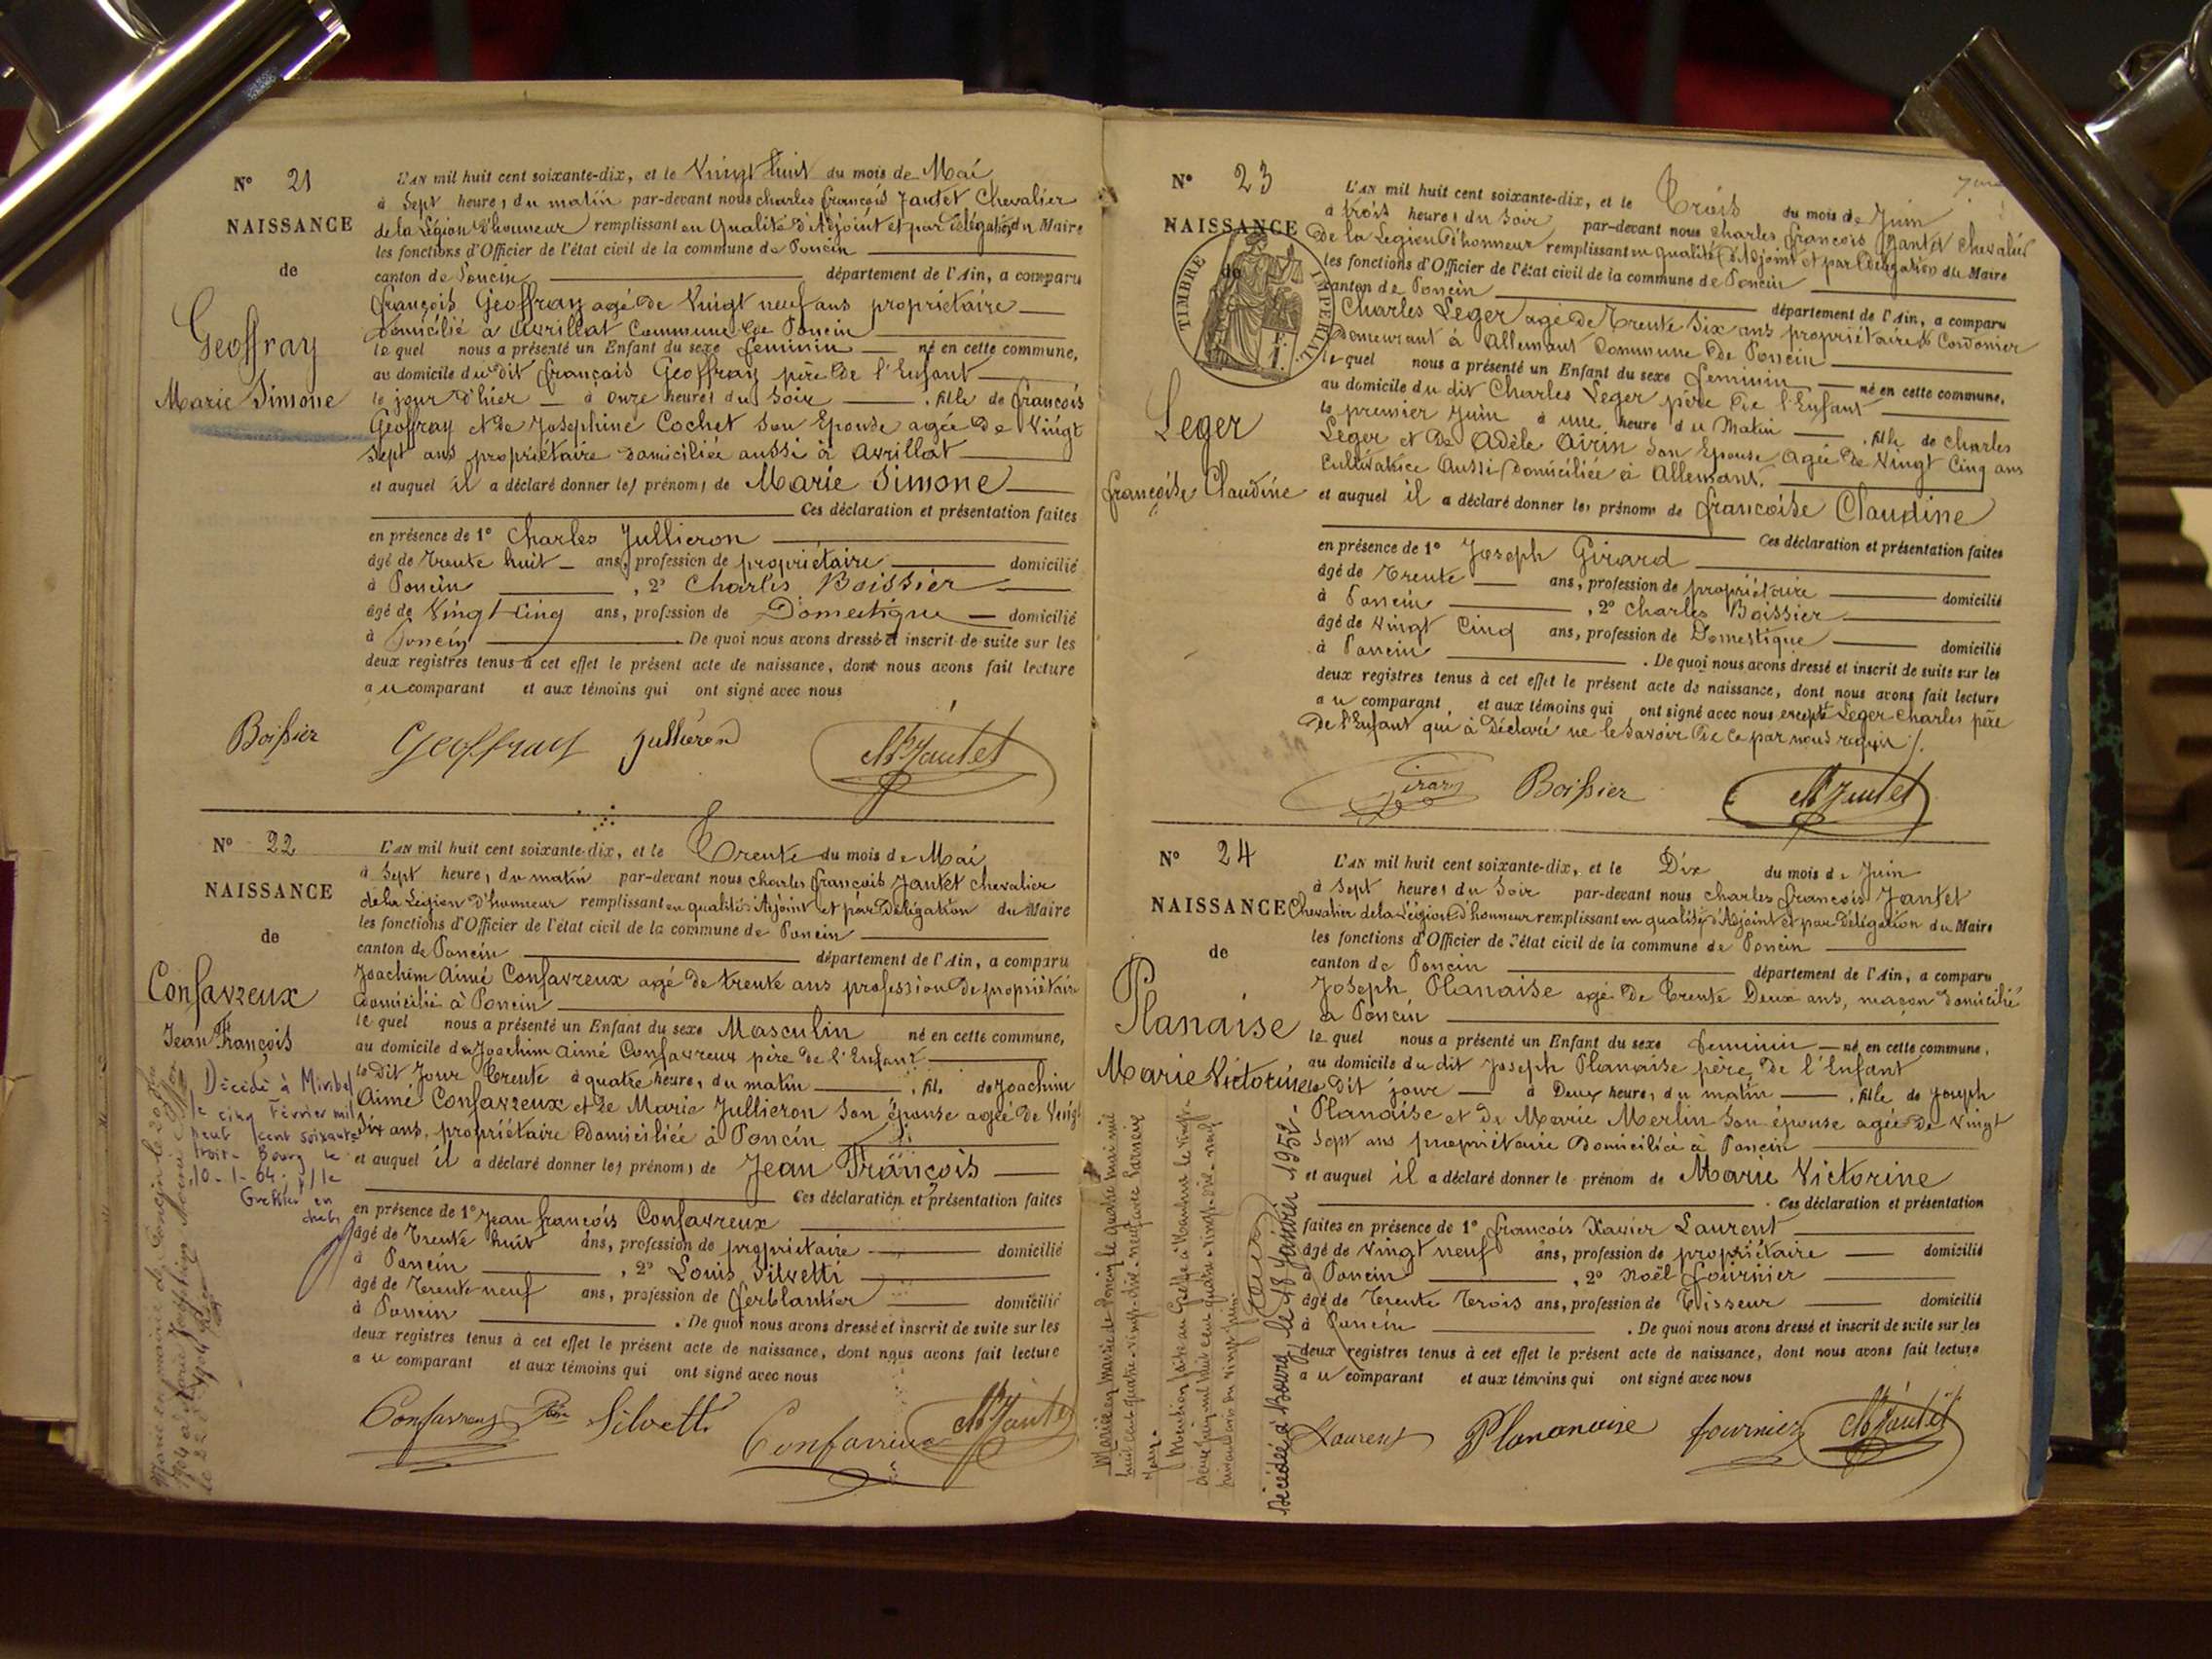 N° 21
NAISSANCE
de
Geoffray
Marie Simone
L'AN mil huit cent soixante-dix, et le Vingt huit du mois de Mai
à Sept heures du matin par-devant nous Charles françois Jantet Chevalier
de la Légion d'honneur remplissant en qualité d'Adjoint et par délégation du Maire
les fonctions d'Officier de l'état civil de la commune de Poncin
canton de Poncin département de l'Ain, a comparu
françois Geoffray agé de Vingt neuf ans propriétaire
domicilié à Avrillat Commune de Poncin
le quel nous a présenté un Enfant du sexe feminin né en cette commune,
au domicile du dit françois Geoffray père de l'Enfant
le jour d'hier à onze heures du Soir , fille de françois
Geoffray et de Josephine Cochet Son Epouse agée de Vingt
Sept ans propriétaire domiciliée aussi à Avrillat
et auquel il a déclaré donner les prénoms de Marie Simone
Ces déclaration et présentation faites
en présence de 1° Charles Jullieron
âgé de Trente huit ans, profession de propriétaire domicilié
à Poncin , 2° Charles Boissier
âgé de Vingt Cinq ans, profession de Domestique domicilié
à Poncin . De quoi nous avons dressé et inscrit de suite sur les
deux registres tenus à cet effet le présent acte de naissance, dont nous avons fait lecture
au comparant et aux témoins qui ont signé avec nous
Boissier Geoffray Jullieron Ch Jantet
N° 22
NAISSANCE
de
Confavreux
Jean François
Décédé à Miribel
le cinq Février mil
neuf cent soixante
trois. Bourg le
10-1-64. P/ le
Greffier en
chef
L'AN mil huit cent soixante-dix, et le Trente du mois de Mai
à Sept heures du matin par-devant nous Charles françois Jantet Chevalier
de la Légion d'honneur remplissant en qualité d'Adjoint et par Délégation du Maire
les fonctions d'Officier de l'état civil de la commune de Poncin
canton de Poncin département de l'Ain, a comparu
Joachim Aimé Confavreux agé de trente ans profession de propriétaire
domicilié à Poncin
le quel nous a présenté un Enfant du sexe Masculin né en cette commune,
au domicile du Joachim Aimé Confavreux père de l'Enfant
le dit Jour Trente à quatre heures du matin , fils de Joachim
Aimé Confavreux et de Marie Jullieron Son épouse agée de Vingt
Six ans, propriétaire domiciliée à Poncin
et auquel il a déclaré donner les prénoms de Jean François
Ces déclaration et présentation faites
en présence de 1° Jean françois Confavreux
âgé de Trente huit ans, profession de propriétaire domicilié
à Poncin , 2° Louis Silvetti
âgé de Trente neuf ans, profession de ferblantier domicilié
à Poncin . De quoi nous avons dressé et inscrit de suite sur les
deux registres tenus à cet effet le présent acte de naissance, dont nous avons fait lecture
au comparant et aux témoins qui ont signé avec nous
Confavreux Silvetti Confavreux Ch Jantet
N° 23
NAISSANCE
de
TIMBRE IMPERIAL
Leger
françoise Claudine
L'AN mil huit cent soixante-dix, et le Trois du mois de Juin
à trois heures du Soir par-devant nous Charles françois Jantet Chevalier
De la Legion d'honneur remplissant en qualité d'Adjoint et par Délégation du Maire
les fonctions d'Officier de l'état civil de la commune de Poncin
canton de Poncin département de l'Ain, a comparu
Charles Leger agé de Trente Six ans propriétaire & Cordonier
Demeurant à Allemant Commune de Poncin
le quel nous a présenté un Enfant du sexe feminin né en cette commune,
au domicile du dit Charles Leger père de l'Enfant
le premier Juin à une heure du Matin , fille de Charles
Leger et de Adèle Airin Son Epouse agée de Vingt Cinq ans
Cultivatrice Aussi Domiciliée à Allemant.
et auquel il a déclaré donner les prénoms de francoise Claudine
Ces déclaration et présentation faites
en présence de 1° Joseph Girard
âgé de Trente ans, profession de propriétaire domicilié
à Poncin , 2° Charles Boissier
âgé de Vingt Cinq ans, profession de Domestique domicilié
à Poncin . De quoi nous avons dressé et inscrit de suite sur les
deux registres tenus à cet effet le présent acte de naissance, dont nous avons fait lecture
au comparant et aux témoins qui ont signé avec nous excepté Leger Charles père
De l'Enfant qui à Déclaré ne le Savoir De ce par nous requis /.
Girard Boissier Ch Jantet
N° 24
NAISSANCE
de
Planaise
Marie Victorine
Décédée à Bourg, le 18 Janvier 1952.
L'AN mil huit cent soixante-dix, et le Dix du mois de Juin
à Sept heures du Soir par-devant nous Charles françois Jantet
Chevalier de la Légion d'honneur remplissant en qualité d'Adjoint et par Délégation du Maire
les fonctions d'Officier de l'état civil de la commune de Poncin
canton de Poncin département de l'Ain, a comparu
Joseph Planaise agé de Trente Deux ans, maçon domicilié
à Poncin
le quel nous a présenté un Enfant du sexe feminin né en cette commune,
au domicile du dit Joseph Planaise père de l'Enfant
le dit jour à Deux heures du matin , fille de Joseph
Planaise et de Marie Merlin Son épouse agée de Vingt
Sept ans propriétaire Domiciliée à Poncin
et auquel il a déclaré donner le prénom de Marie Victorine
. Ces déclaration et présentation
faites en présence de 1° françois Xavier Laurent
âgé de Vingt neuf ans, profession de propriétaire domicilié
à Poncin , 2° Noël fournier
âgé de Trente Trois ans, profession de Tisseur domicilié
à Poncin . De quoi nous avons dressé et inscrit de suite sur les
deux registres tenus à cet effet le présent acte de naissance, dont nous avons fait lecture
au comparant et aux témoins qui ont signé avec nous
Laurent Plananaise fournier Ch Jantet